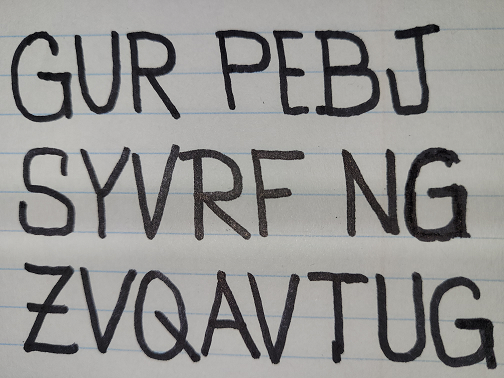 GUR PEBJ
SYVRF NG
ZVQAVTUG